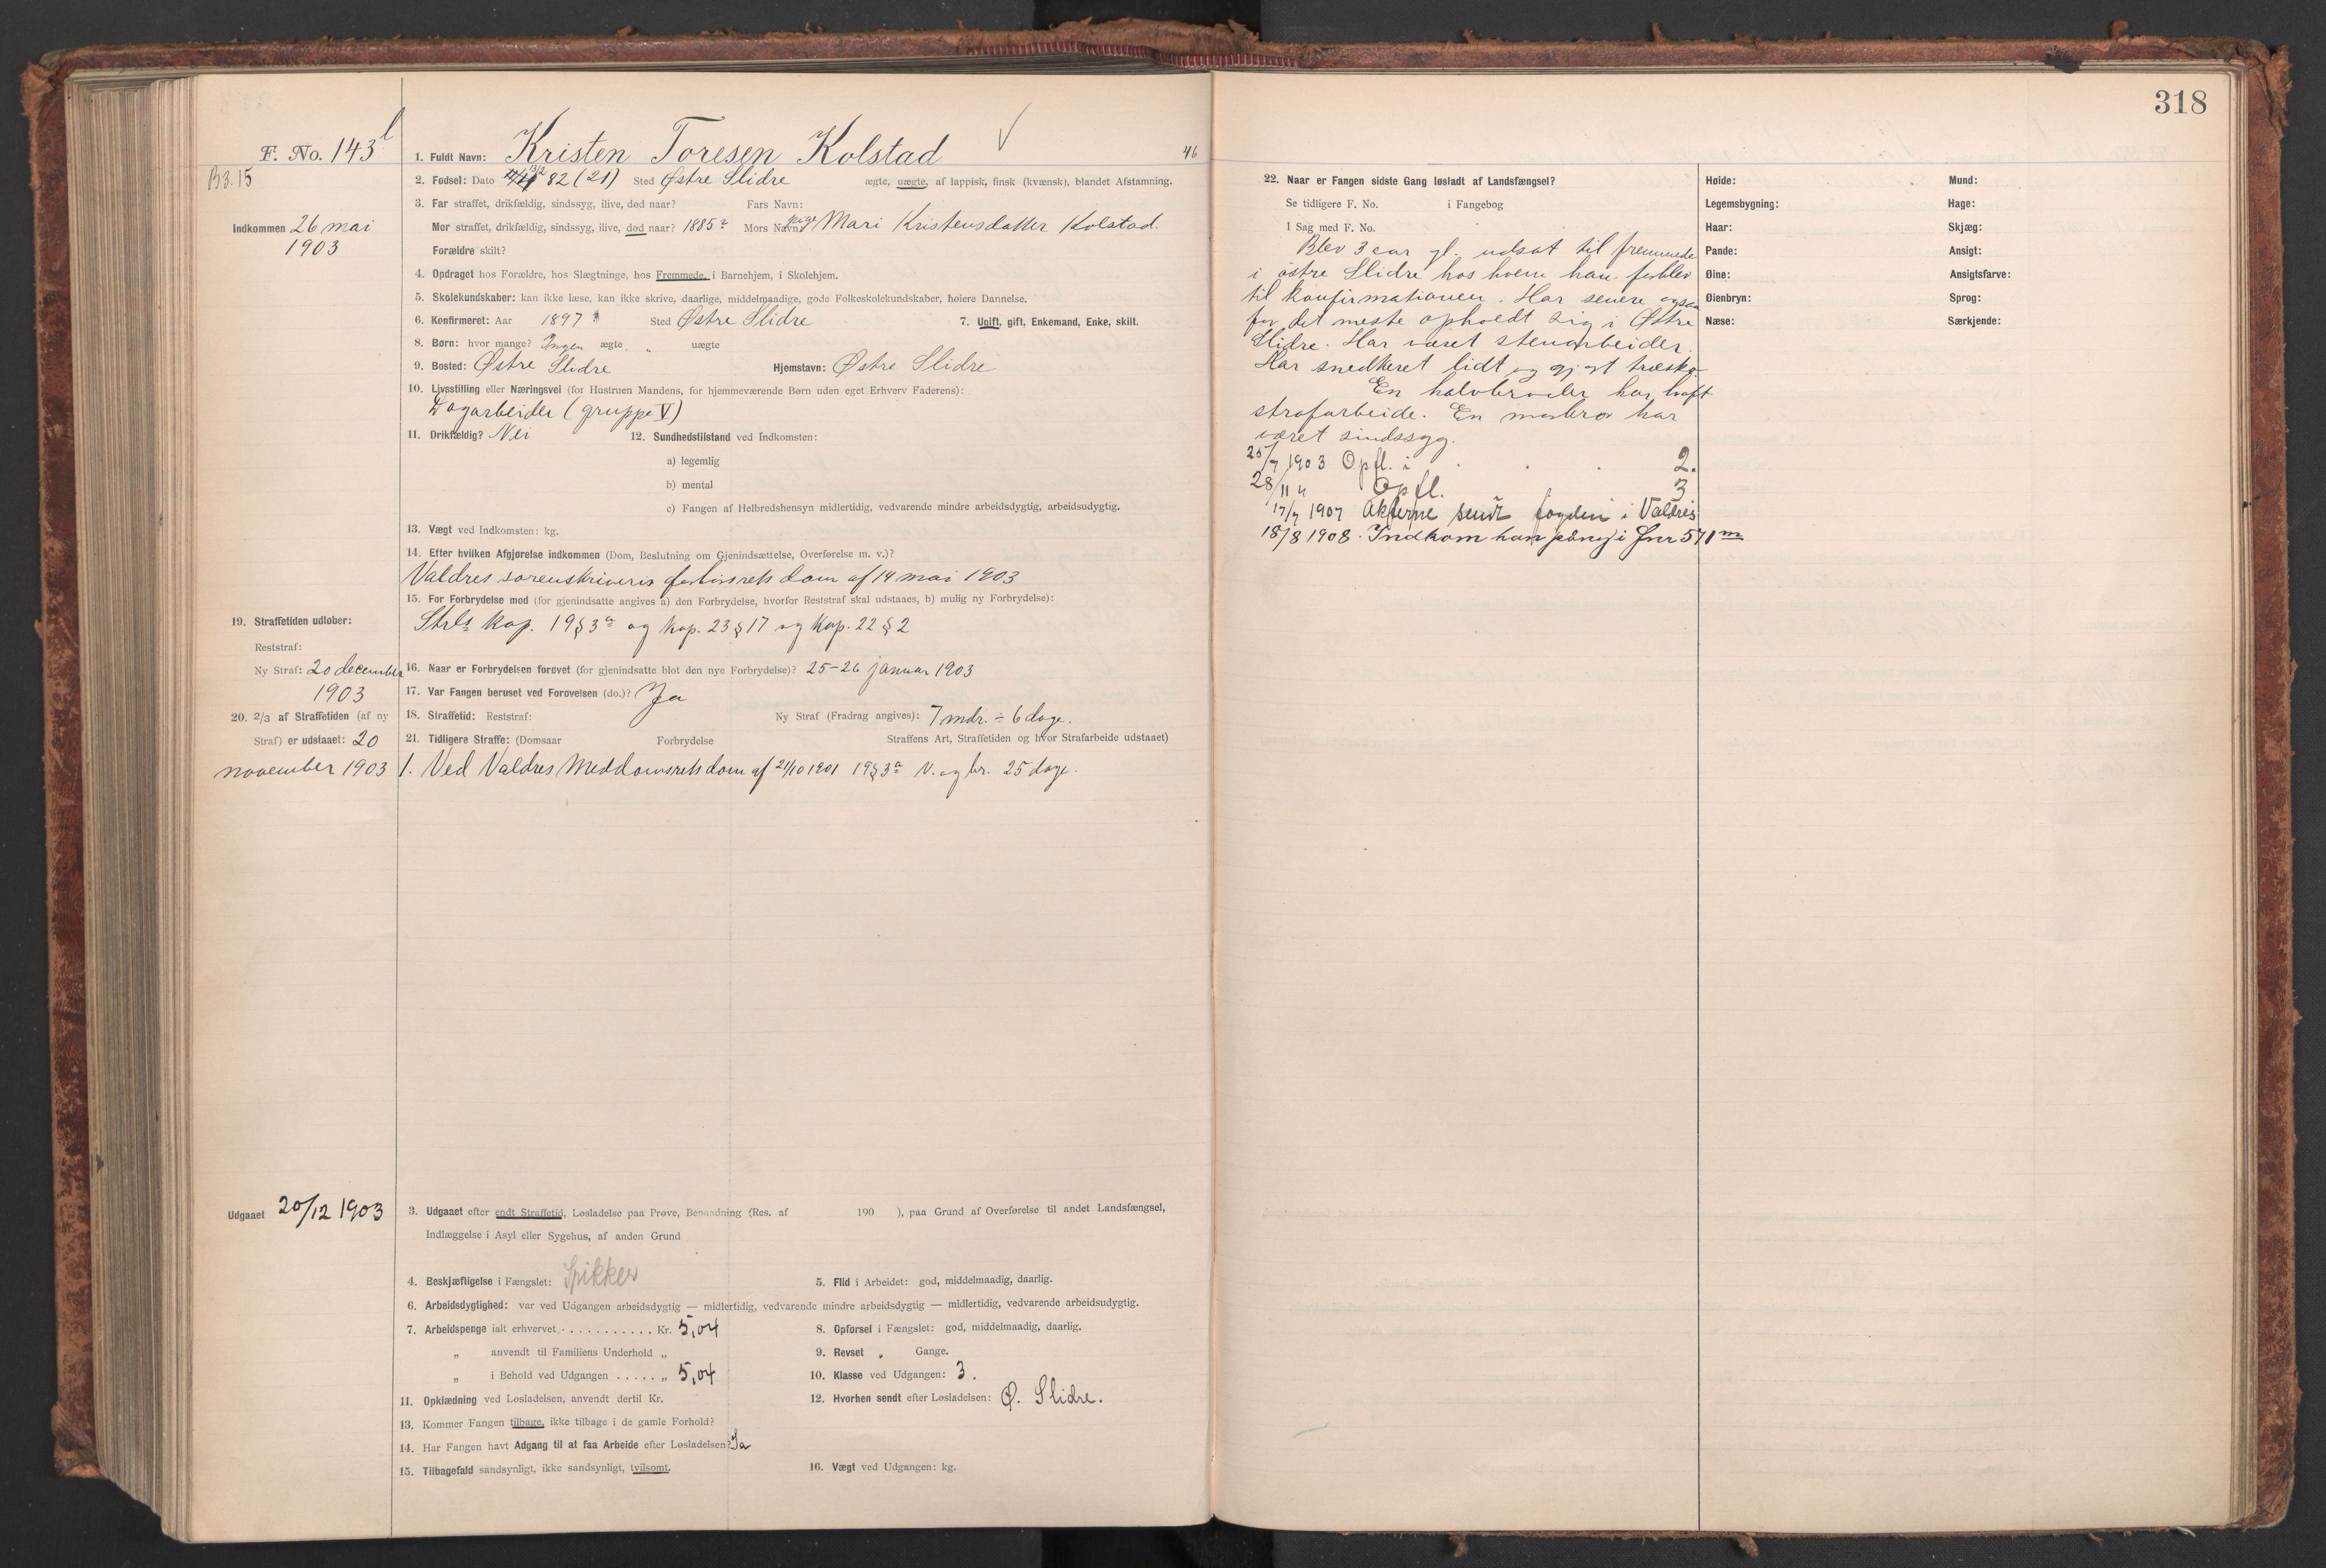 318
F. No. 143 l
1. Fuldt Navn: Kristen Toresen Kolstad
46
B3.15
2. Fødsel: Dato 13/2 82 (21) Sted Østre Slidre ægte, uægte, af lappisk, finsk (kvænsk), blandet Afstamning.
3. Far straffet, drikfældig, sindssyg, ilive, død naar? Fars Navn:
Indkommen 26 mai
1903
Mor straffet, drikfældig, sindssyg, ilive, død naar? 1885 Mors Navn: pige Mari Kristensdatter Kolstad.
Forældre skilt?
4. Opdraget hos Forældre, hos Slægtninge, hos Fremmede, i Barnehjem, i Skolehjem.
5. Skolekundskaber: kan ikke læse, kan ikke skrive, daarlige, middelmaadige, gode Folkeskolekundskaber, høiere Dannelse.
6. Konfirmeret: Aar 1897 Sted Østre Slidre 7. Ugift, gift, Enkemand, Enke, skilt.
8. Børn: hvor mange? Ingen ægte „ uægte
9. Bosted: Østre Slidre Hjemstavn: Østre Slidre
10. Livsstilling eller Næringsvei (for Hustruen Mandens, for hjemmeværende Børn uden eget Erhverv Faderens):
Dagarbeider (gruppe V)
11. Drikfældig? Nei 12. Sundhedstilstand ved Indkomsten:
a) legemlig
b) mental
c) Fangen af Helbredshensyn midlertidig, vedvarende mindre arbeidsdygtig, arbeidsudygtig.
13. Vægt ved Indkomsten: kg.
14. Efter hvilken Afgjørelse indkommen (Dom, Beslutning om Gjenindsættelse, Overførelse m. v.)?
Valdres sorenskriveris forhørsrets dom af 14 mai 1903
15. For Forbrydelse mod (for gjenindsatte angives a) den Forbrydelse, hvorfor Reststraf skal udstaaes, b) mulig ny Forbrydelse):
Strls kap. 19 § 3 a og kap. 23 § 17 og kap. 22 § 2
19. Straffetiden udløber:
Reststraf:
Ny Straf: 20 december
1903
16. Naar er Forbrydelsen forøvet (for gjenindsatte blot den nye Forbrydelse)? 25-26 januar 1903
17. Var Fangen beruset ved Forøvelsen (do.)? Ja
20. 2/3 af Straffetiden (af ny
Straf) er udstaaet: 20
november 1903
18. Straffetid: Reststraf: Ny Straf (Fradrag angives): 7 mdr. ÷ 6 dage.
21. Tidligere Straffe: (Domsaar Forbrydelse Straffens Art, Straffetiden og hvor Strafarbeide udstaaet)
1. Ved Valdres Meddomsrets dom af 21/10 1901 19 § 3 a V. og br. 25 dage.
Udgaaet 20/12 1903
3. Udgaaet efter endt Straffetid, Løsladelse paa Prøve, Benaadning (Res. af 190 ), paa Grund af Overførelse til andet Landsfængsel,
Indlæggelse i Asyl eller Sygehus, af anden Grund
4. Beskjæftigelse i Fængslet: Spikker 5. Flid i Arbeidet: god, middelmaadig, daarlig.
6. Arbeidsdygtighed: var ved Udgangen arbeidsdygtig — midlertidig, vedvarende mindre arbeidsdygtig — midlertidig, vedvarende arbeidsudygtig.
7. Arbeidspenge ialt erhvervet . . . . . . . . . . . Kr. 5,04 8. Opførsel i Fængslet: god, middelmaadig, daarlig.
„ anvendt til Familiens Underhold „ 9. Revset „ Gange.
„ i Behold ved Udgangen . . . . . „ 5,04 10. Klasse ved Udgangen: 3.
11. Opklædning ved Løsladelsen, anvendt dertil Kr. 12. Hvorhen sendt efter Løsladelsen: Ø. Slidre.
13. Kommer Fangen tilbage, ikke tilbage i de gamle Forhold?
14. Har Fangen havt Adgang til at faa Arbeide efter Løsladelsen? Ja
15. Tilbagefald sandsynligt, ikke sandsynligt, tvilsomt. 16. Vægt ved Udgangen: kg.
22. Naar er Fangen sidste Gang løsladt af Landsfængsel?
Se tidligere F. No. i Fangebog
I Sag med F. No.
Blev 3 aar gl. udsat til fremmede
i østre Slidre hos hvem han forblev
til konfirmationen. Har senere ogsaa
for det meste opholdt sig i Østre
Slidre. Har været stenarbeider.
Har snedkeret lidt og gjort træsko.
En halvbroder har havt
strafarbeide. En morbror har
været sindssyg.
25/7 1903 Opfl. i . . . 2.
28/11 „ Opfl. 3
17/7 1907 Akterne sendt fogden i Valdres
18/8 1908. Indkom han påny i Fnr 571 m
Høide: Mund:
Legemsbygning: Hage:
Haar: Skjæg:
Pande: Ansigt:
Øine: Ansigtsfarve:
Øienbryn: Sprog:
Næse: Særkjende: